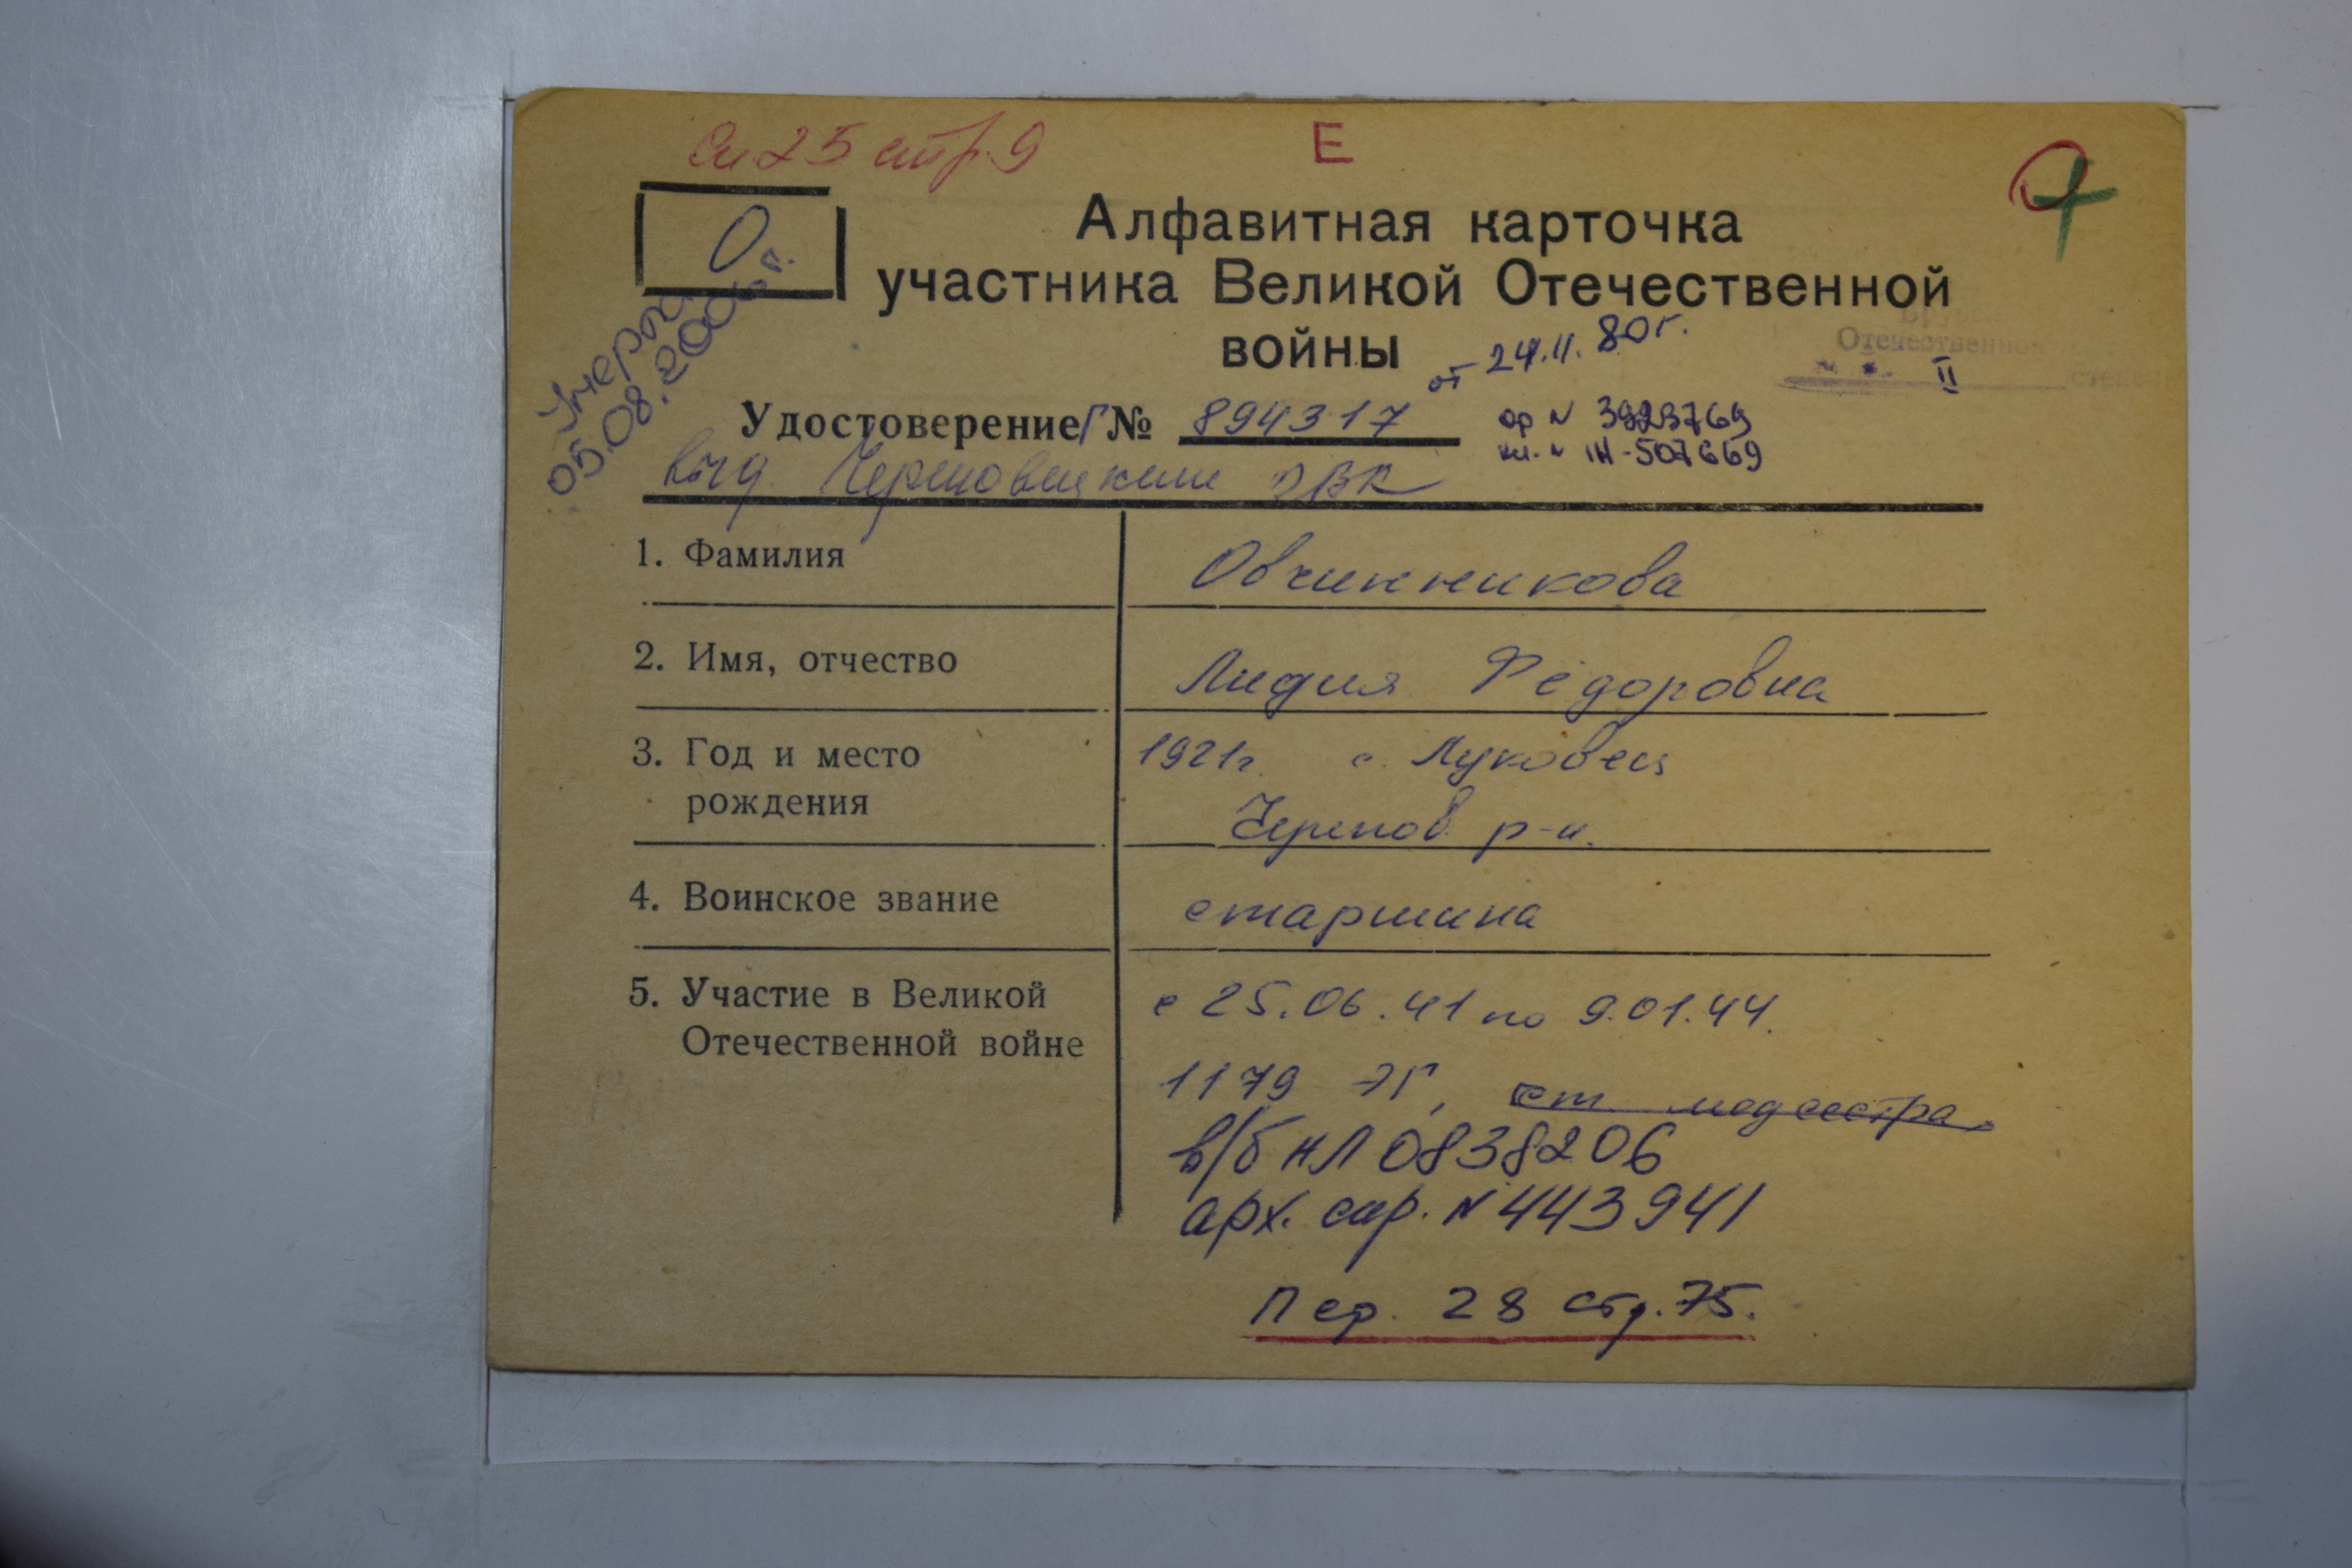 Сп 25 стр. 9
Е
О
Алфавитная карточка
участника Великой Отечественной
войны
от 24.11.80г.
Отечественной
II
степени
Умерла
05.08.2006 г.
Удостоверение Г №
894317
ор № 3923769
выд. Череповецким ОВК
1. Фамилия
Овчинникова
2. Имя, отчество
Лидия Фёдоровна
3. Год и место
рождения
1921г. с. Луковец
Черепов. р-н.
4. Воинское звание
старшина
5. Участие в Великой
Отечественной войне
с 25.06.41 по 9.01.44.
1179 ЭГ, ст медсестра
в/б НЛ 0838206
арх. спр. № 443941
Пер. 28 стр. 75.